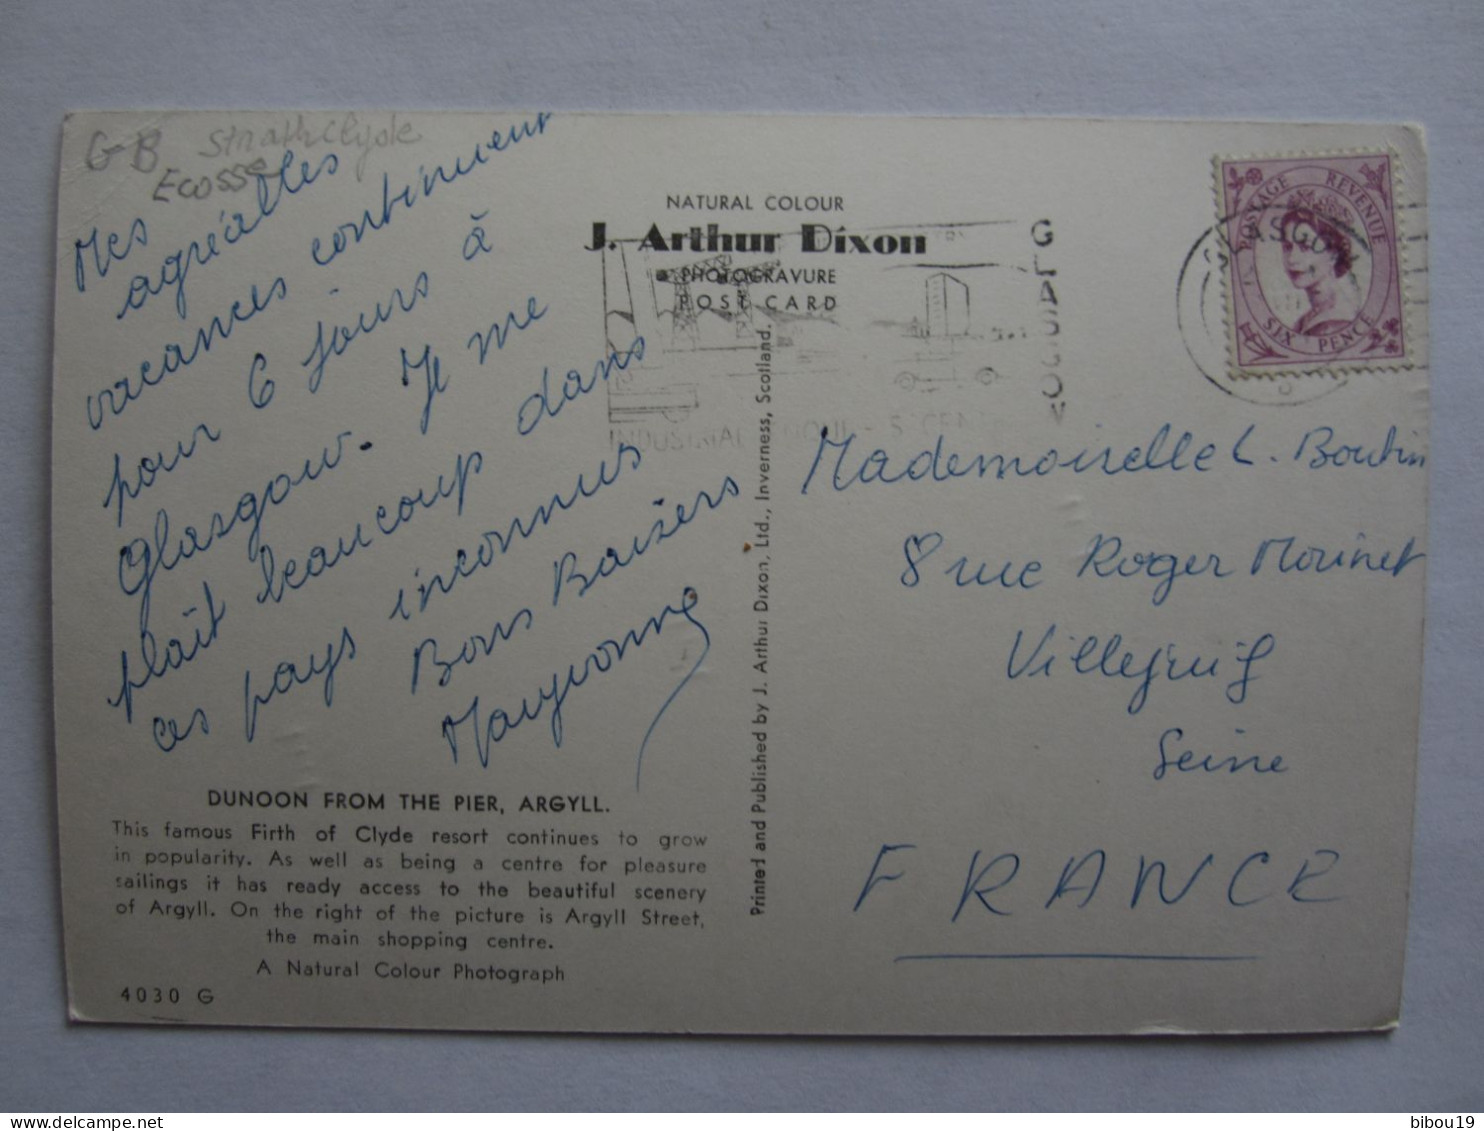 GB Strathclyde
Ecosse
Mes
agréables
vacances continuent
pour 6 jours à
Glasgow. Je me
plaît beaucoup dans
ces pays inconnus
Bons Baisers
Maryvonne
DUNOON FROM THE PIER, ARGYLL.
This famous Firth of Clyde resort continues to grow
in popularity. As well as being a centre for pleasure
sailings it has ready access to the beautiful scenery
of Argyll. On the right of the picture is Argyll Street,
the main shopping centre.
A Natural Colour Photograph
4030 G
NATURAL COLOUR
J. Arthur Dixon
PHOTOGRAVURE
POST CARD
Printed and Published by J. Arthur Dixon, Ltd., Inverness, Scotland.
GLASGOW
INDUSTRIAL
GLASGOW
POSTAGE REVENUE
SIX PENCE
Mademoiselle L. Boutin
8 rue Roger Morinet
Villejuif
Seine
FRANCE
bibou19